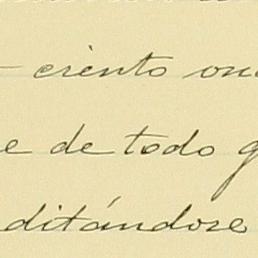 - ciento onc
e de todo g
ditándose